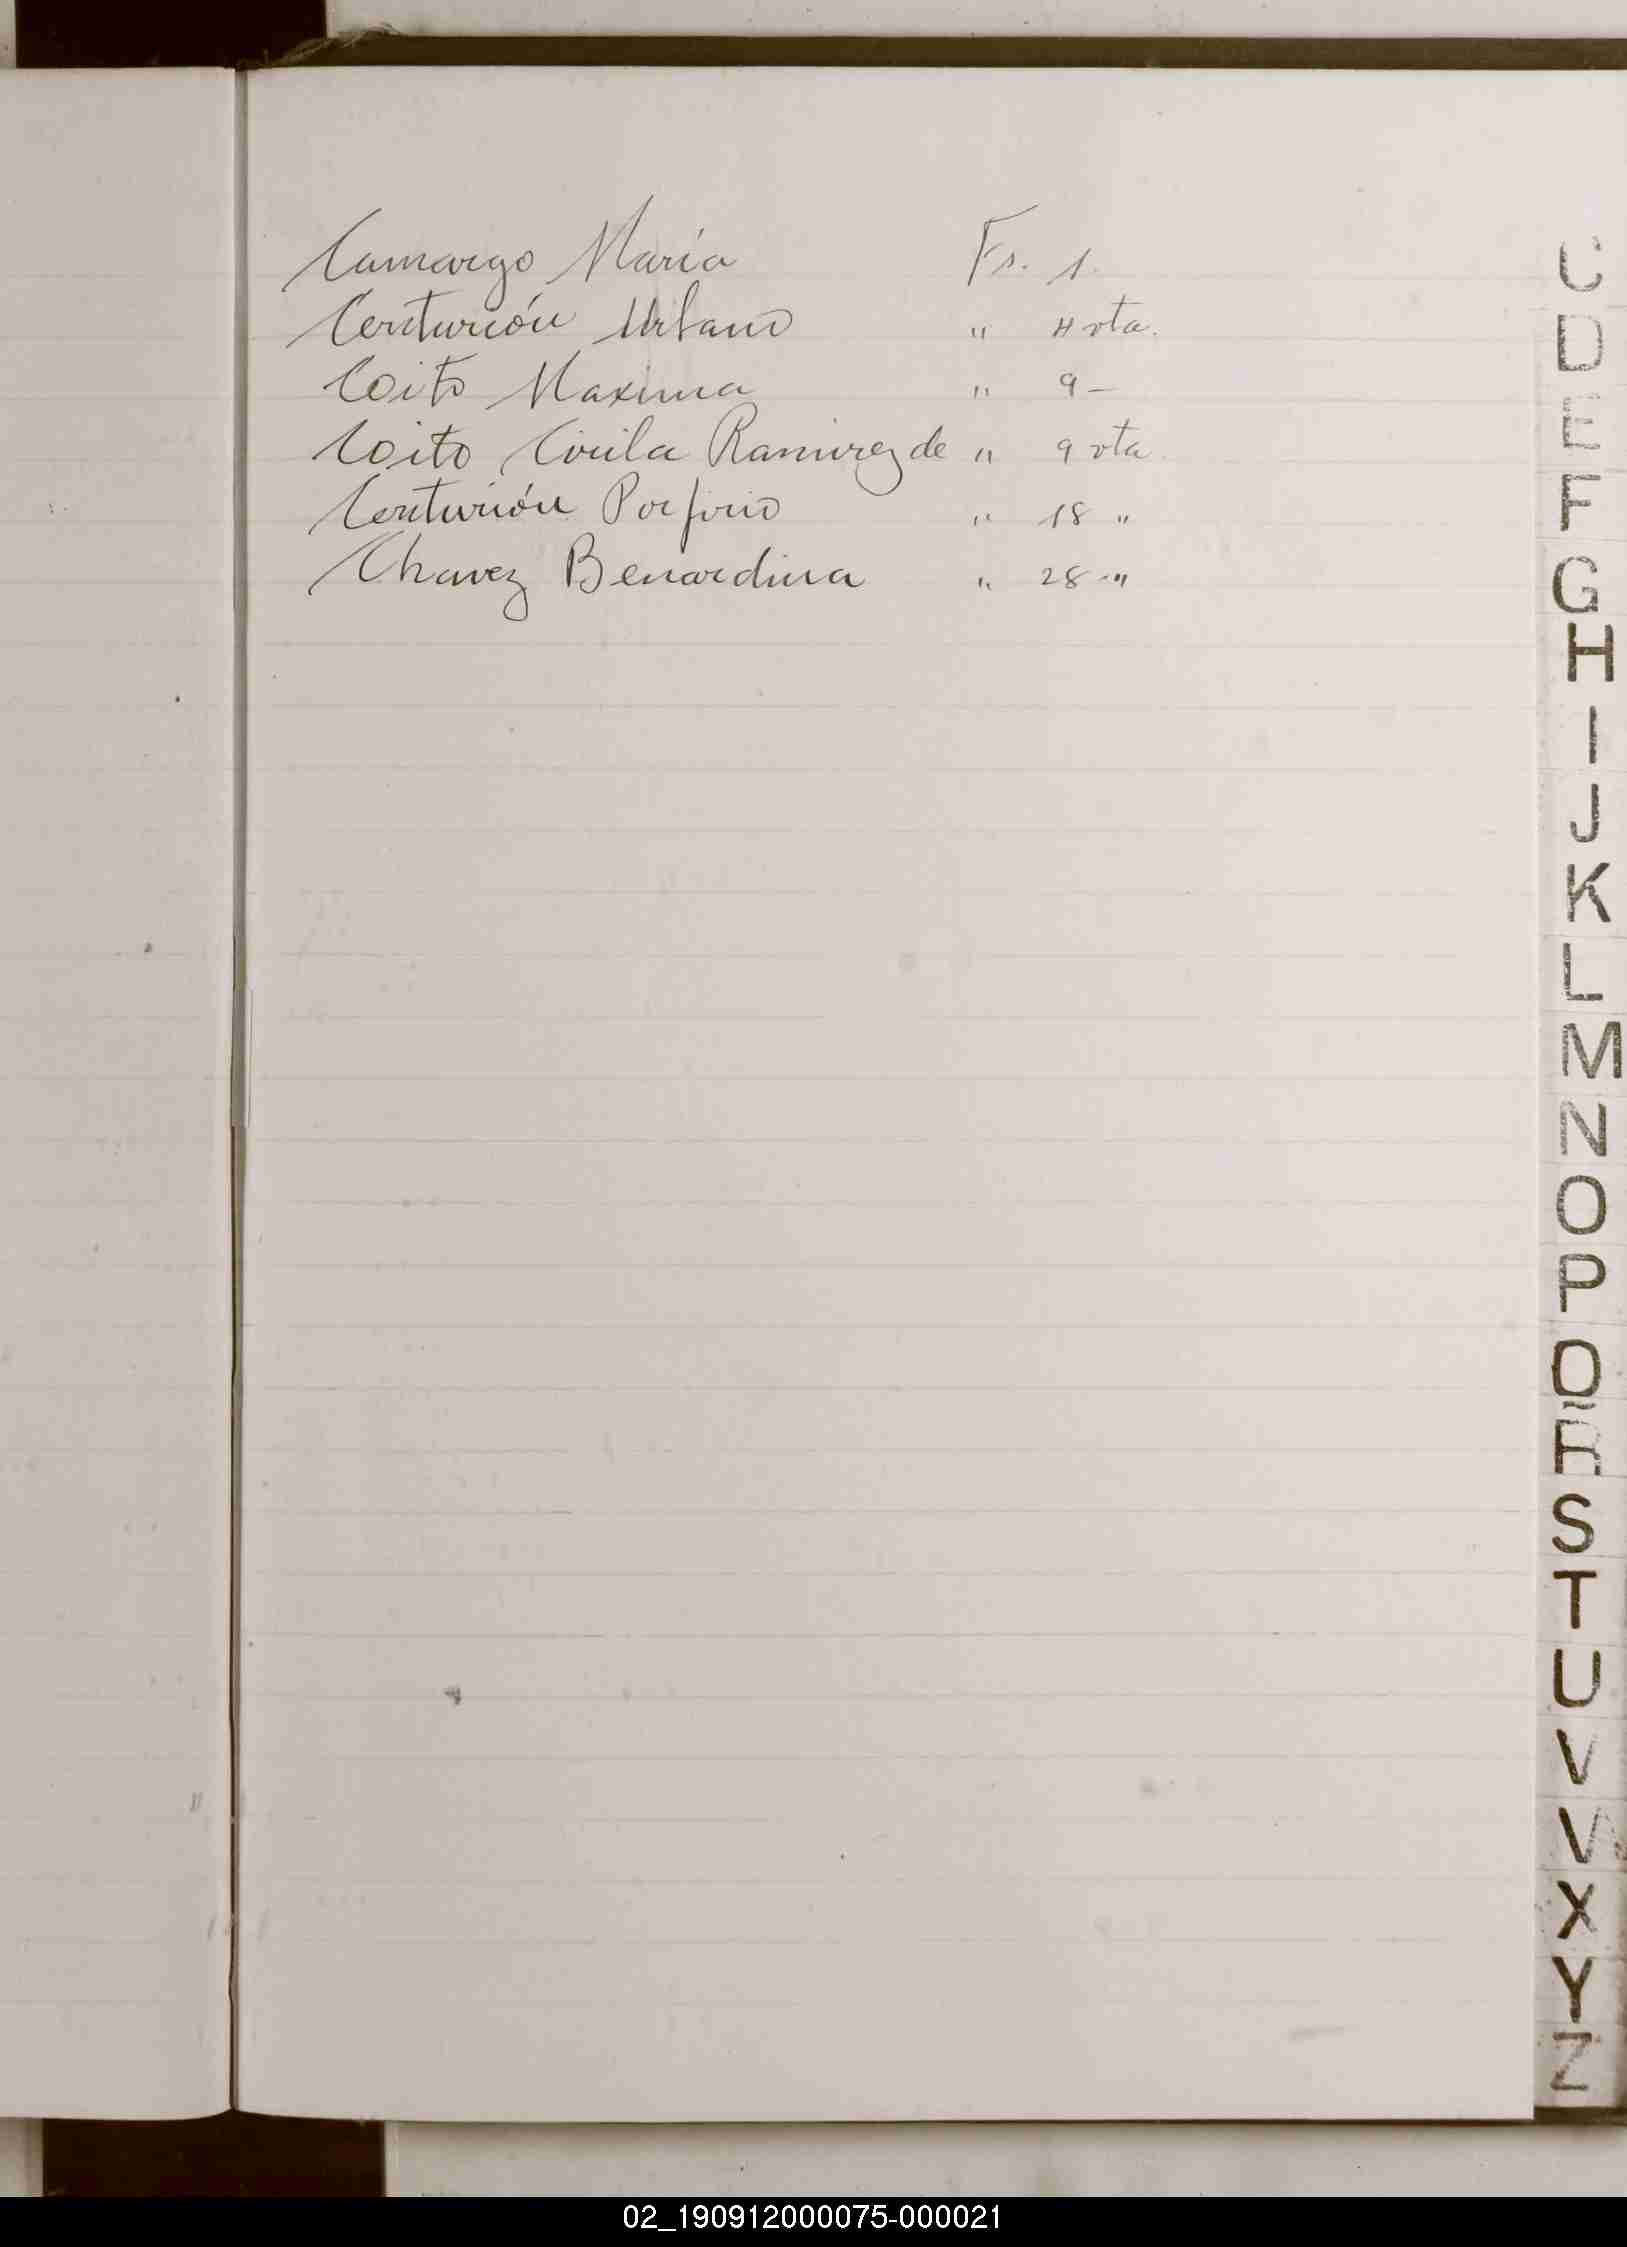 Camargo María Fs. 1.
Centurión Urbano " 4 vta.
Coito Maxima " 9 —
Coito Cirila Ramirez de " 9 vta.
Centurión Porfirio " 18 "
Chavez Benardina " 28 - "
C
D
E
F
G
H
I
J
K
L
M
N
O
P
Q
R
S
T
U
V
W
X
Y
Z
02_190912000075-000021